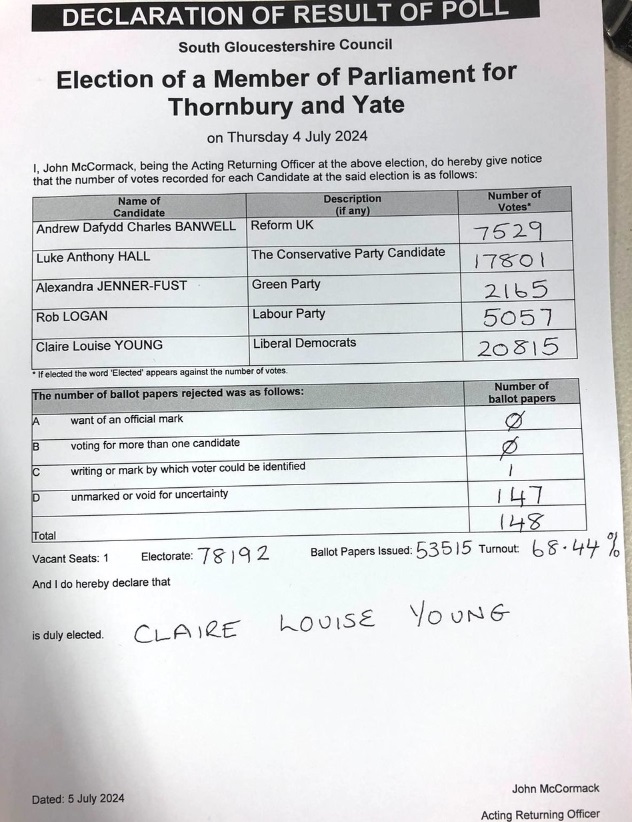 DECLARATION OF RESULT OF POLL
South Gloucestershire Council
Election of a Member of Parliament for
Thornbury and Yate
on Thursday 4 July 2024
I, John McCormack, being the Acting Returning Officer at the above election, do hereby give notice
that the number of votes recorded for each Candidate at the said election is as follows:
Name of Candidate Description (if any) Number of Votes*
Andrew Dafydd Charles BANWELL Reform UK 7529
Luke Anthony HALL The Conservative Party Candidate 17801
Alexandra JENNER-FUST Green Party 2165
Rob LOGAN Labour Party 5057
Claire Louise YOUNG Liberal Democrats 20815
* If elected the word 'Elected' appears against the number of votes.
The number of ballot papers rejected was as follows: Number of ballot papers
A want of an official mark Ø
B voting for more than one candidate Ø
C writing or mark by which voter could be identified 1
D unmarked or void for uncertainty 147
Total 148
Vacant Seats: 1 Electorate: 78192 Ballot Papers Issued: 53515 Turnout: 68.44%
And I do hereby declare that
is duly elected. CLAIRE LOUISE YOUNG
John McCormack
Dated: 5 July 2024
Acting Returning Officer